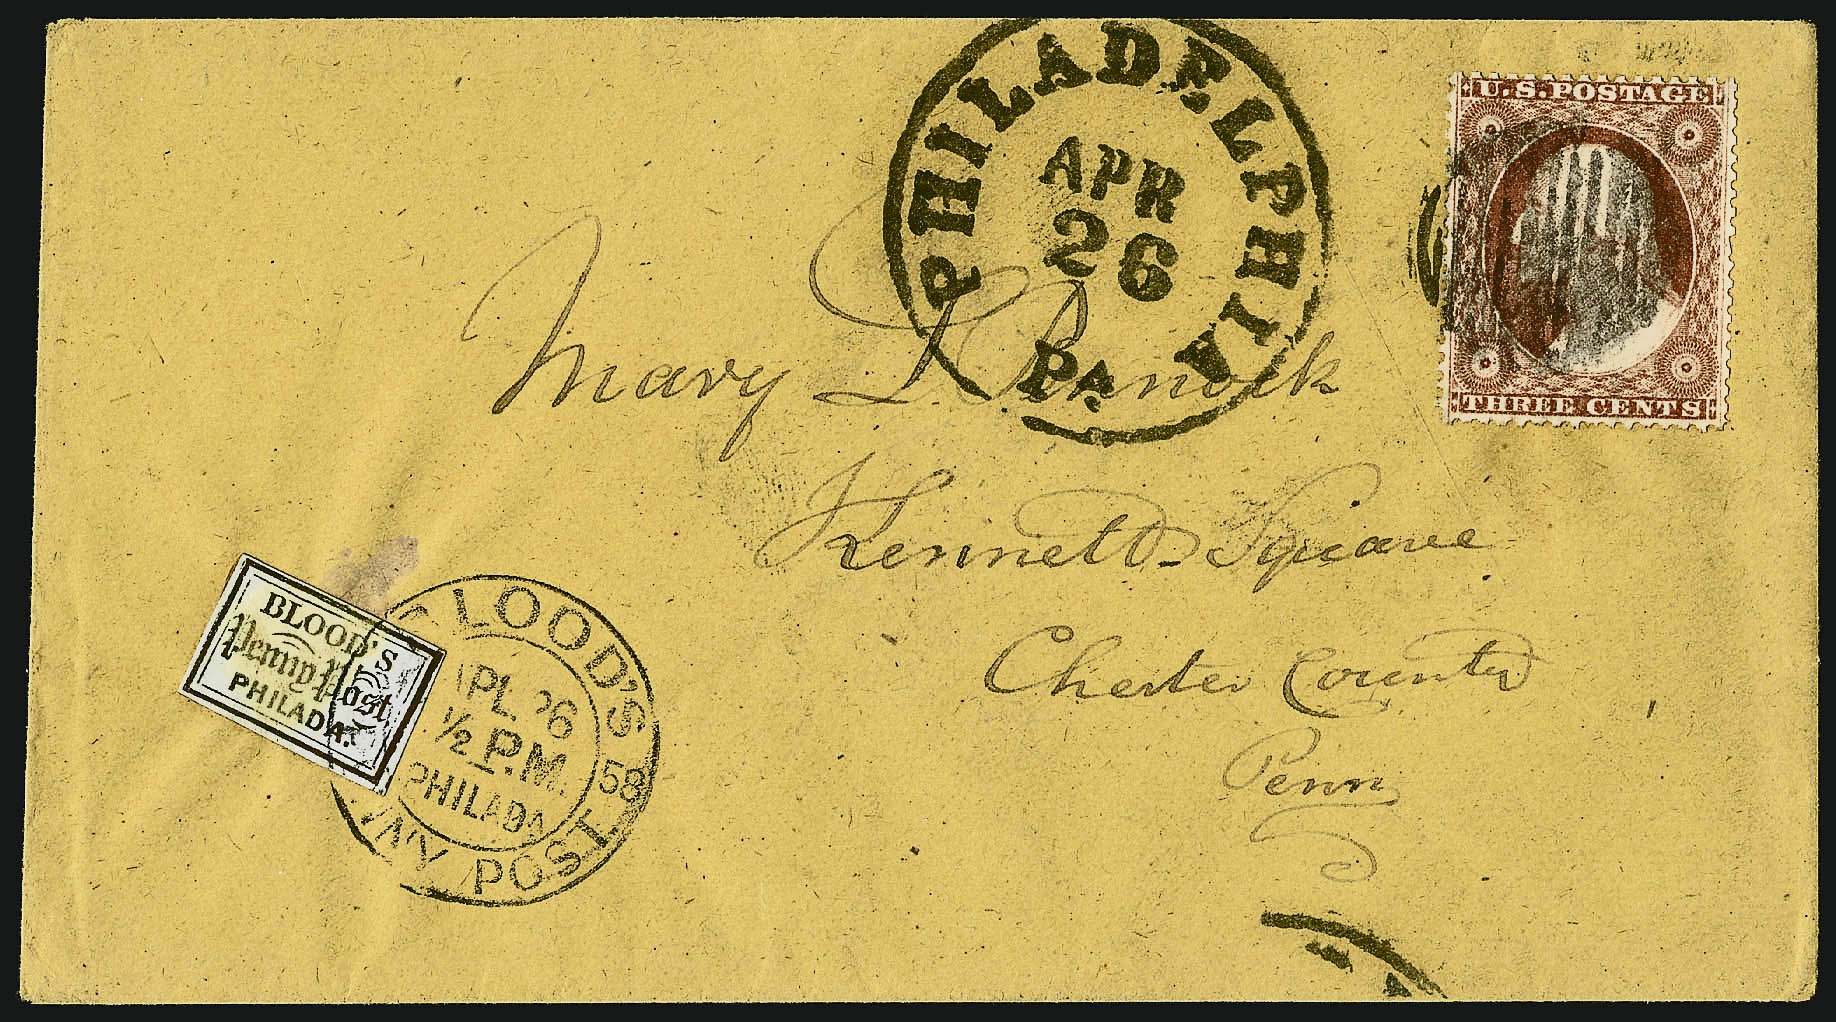 PHILADELPHIA
APR
26
PA
U.S. POSTAGE
THREE CENTS
Mary L. Pennock
Kennett Square
Chester County
Penn
BLOOD'S
Penny Post
PHILADA.
BLOOD'S
APL 26
1/2 P.M.
PHILADA
58
NNY POST